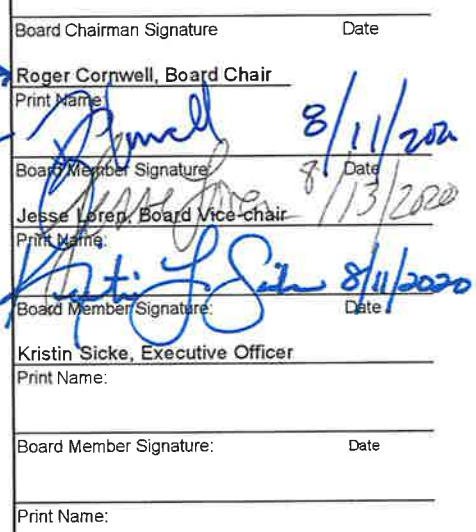 Board Chairman Signature Date
Roger Cornwell, Board Chair
Print Name:
8/11/202
Board Member Signature: Date
Jesse Loren 8/13/2020
Jesse Loren, Board Vice-chair
Print Name:
Kristin L Sicke 8/11/2020
Board Member Signature: Date
Kristin Sicke, Executive Officer
Print Name:
Board Member Signature: Date
Print Name: